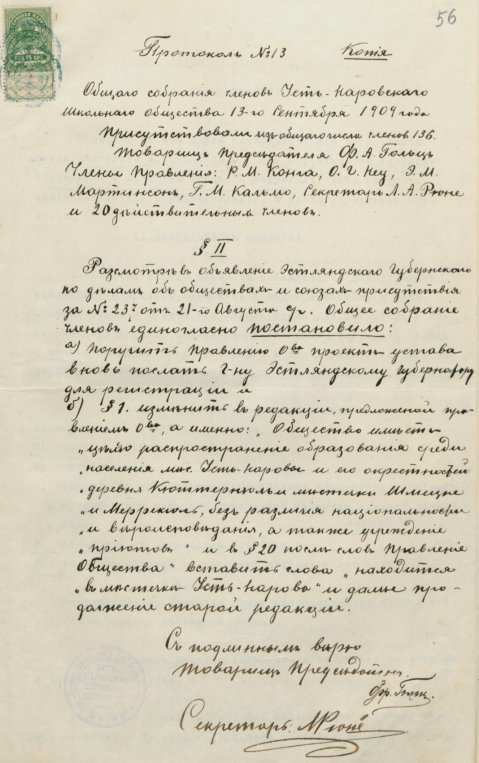 56
Протоколъ №13 Копія
Общаго собранія членовъ Усть-Наровскаго
Школьнаго Общества 13-го Сентября 1909 года
Присутствовали изъ общаго числа членовъ 136.
Товарищъ Предсѣдателя Ф. А. Гольцъ
Члены Правленія: Р. М. Конга, О. Г. Неу, Э. М.
Мартинсонъ, Г. М. Кальмо, Секретарь Л. А. Рюне
и 20 дѣйствительныхъ членовъ.
§ II
Разсмотрѣвъ объявленіе Эстляндскаго Губернскаго
по дѣламъ объ обществахъ и союзахъ присутствія
за № 237 отъ 21-го Августа с/г. Общее собраніе
членовъ единогласно постановило:
а) поручить Правленію О-ва проектъ устава
вновь послать г-ну Эстляндскому Губернатору
для регистраціи и
б) § 1. измѣнить въ редакціи, предложеной пра-
вленіемъ О-ва, а именно: „Общество имѣетъ
„цѣлью распространеніе образованія среди
„населенія мѣс. Усть-Наровы и его окрестностей
„деревня Кюттеркюль и мѣстечки Шмецке
„и Меррекюль, безъ различія національности
„и вѣроисповѣданія, а также учрежденіе
„пріютовъ“ и въ § 20 послѣ словъ Правленіе
Общества“ вставить слова „находится
„въ мѣстечкѣ Усть-Нарова“ и далѣе про-
долженіе старой редакціи.
Съ подлиннымъ вѣрно
Товарищъ Предсѣдателя:
Фр. Гольцъ
Секретарь: Рюне